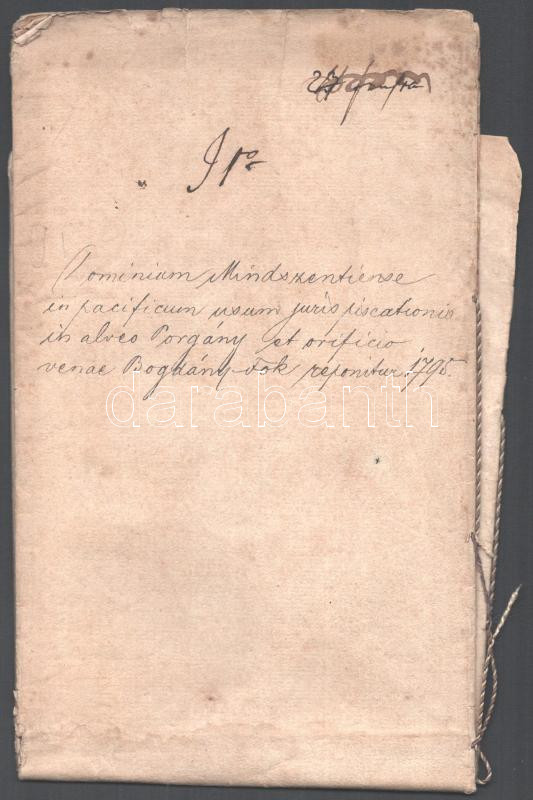 27
Dominium Mindszentiense
in pacificum usum juris piscationis
in alveo Porgány et orificio
venae Bogdány-Fok reponitur. 1795.
darabanth